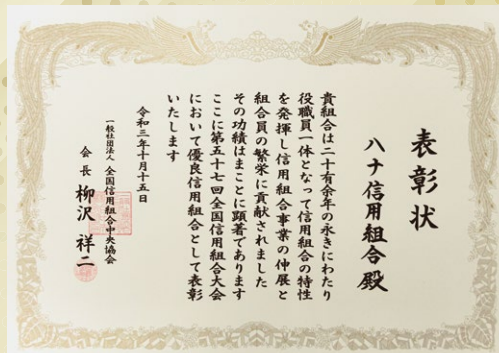 表彰状
ハナ信用組合殿
貴組合は二十有余年の永きにわたり
役職員一体となって信用組合の特性
を発揮し信用組合事業の伸展と
組合員の繁栄に貢献されました
その功績はまことに顕著であります
ここに第五十七回全国信用組合大会
において優良信用組合として表彰
いたします
令和三年十月十五日
一般社団法人 全国信用組合中央協会
会長 柳沢祥二